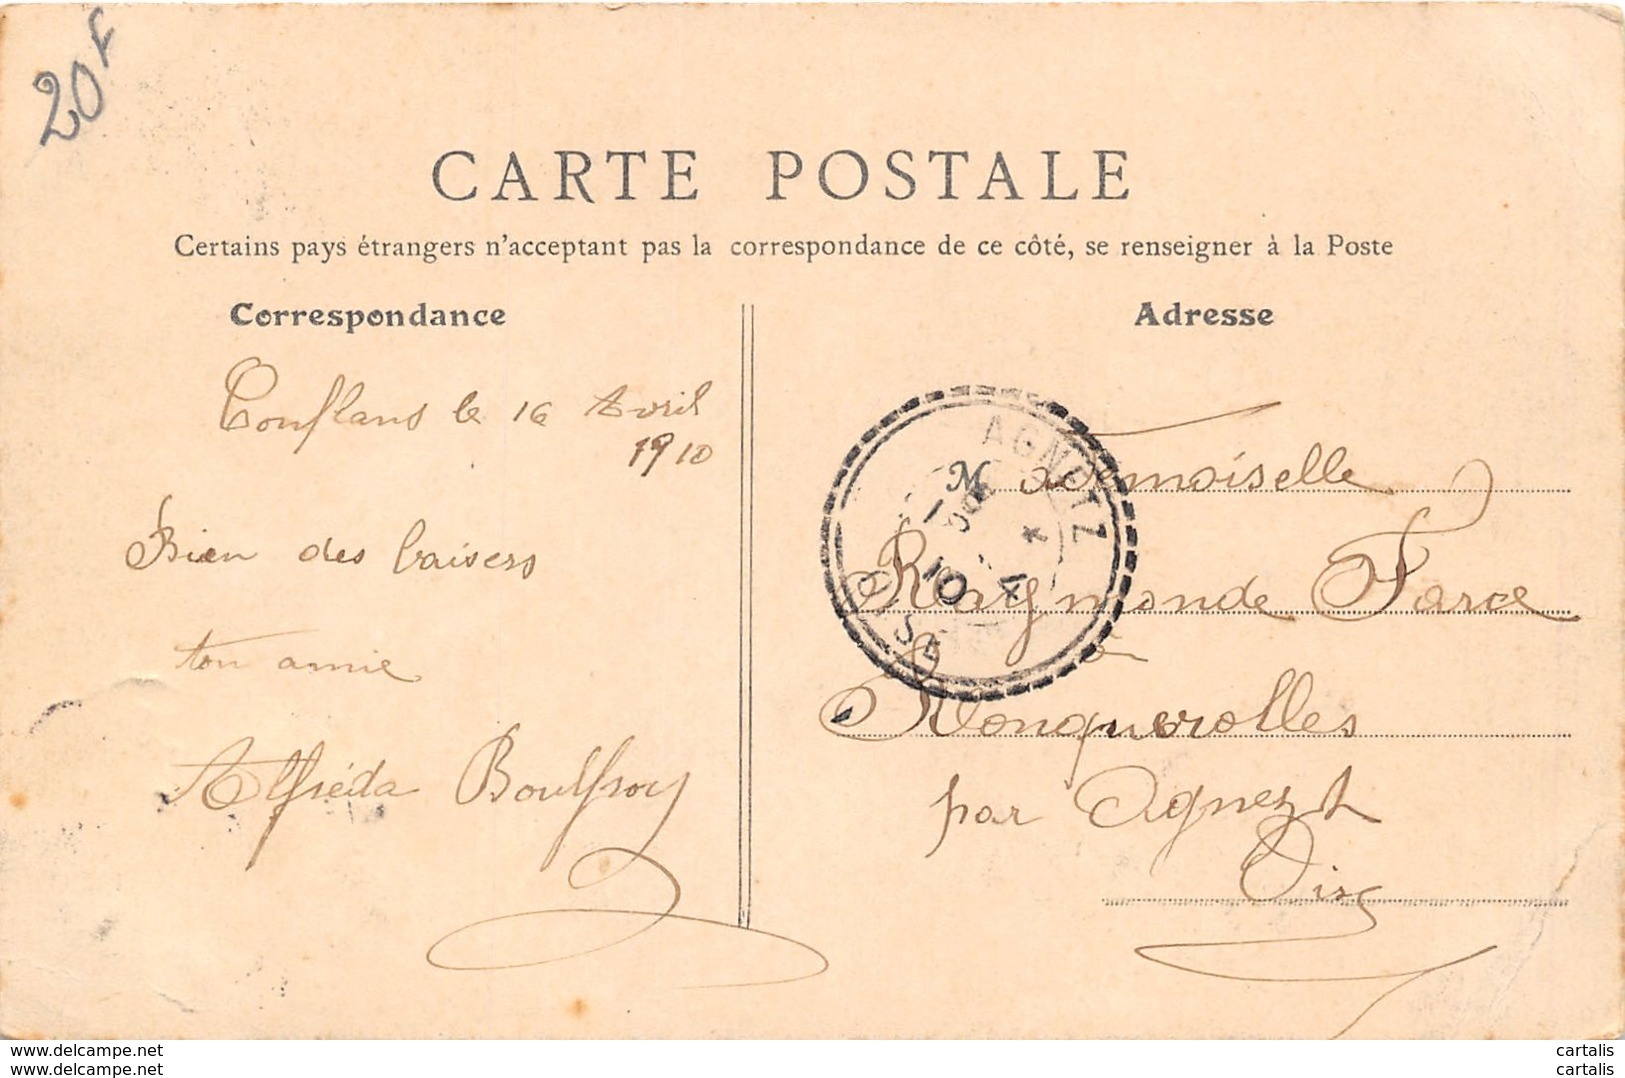 20f
CARTE POSTALE
Certains pays étrangers n'acceptant pas la correspondance de ce côté, se renseigner à la Poste
Correspondance
Conflans le 16 Avril
1910
Bien des baisers
ton amie
Alfréda Boulfroy
Adresse
Mademoiselle
Raymonde Farce
à
Ronquerolles
par Agnezt
Oise
AGNETZ
10 4
OISE
www.delcampe.net
www.delcampe.net
cartalis
cartalis